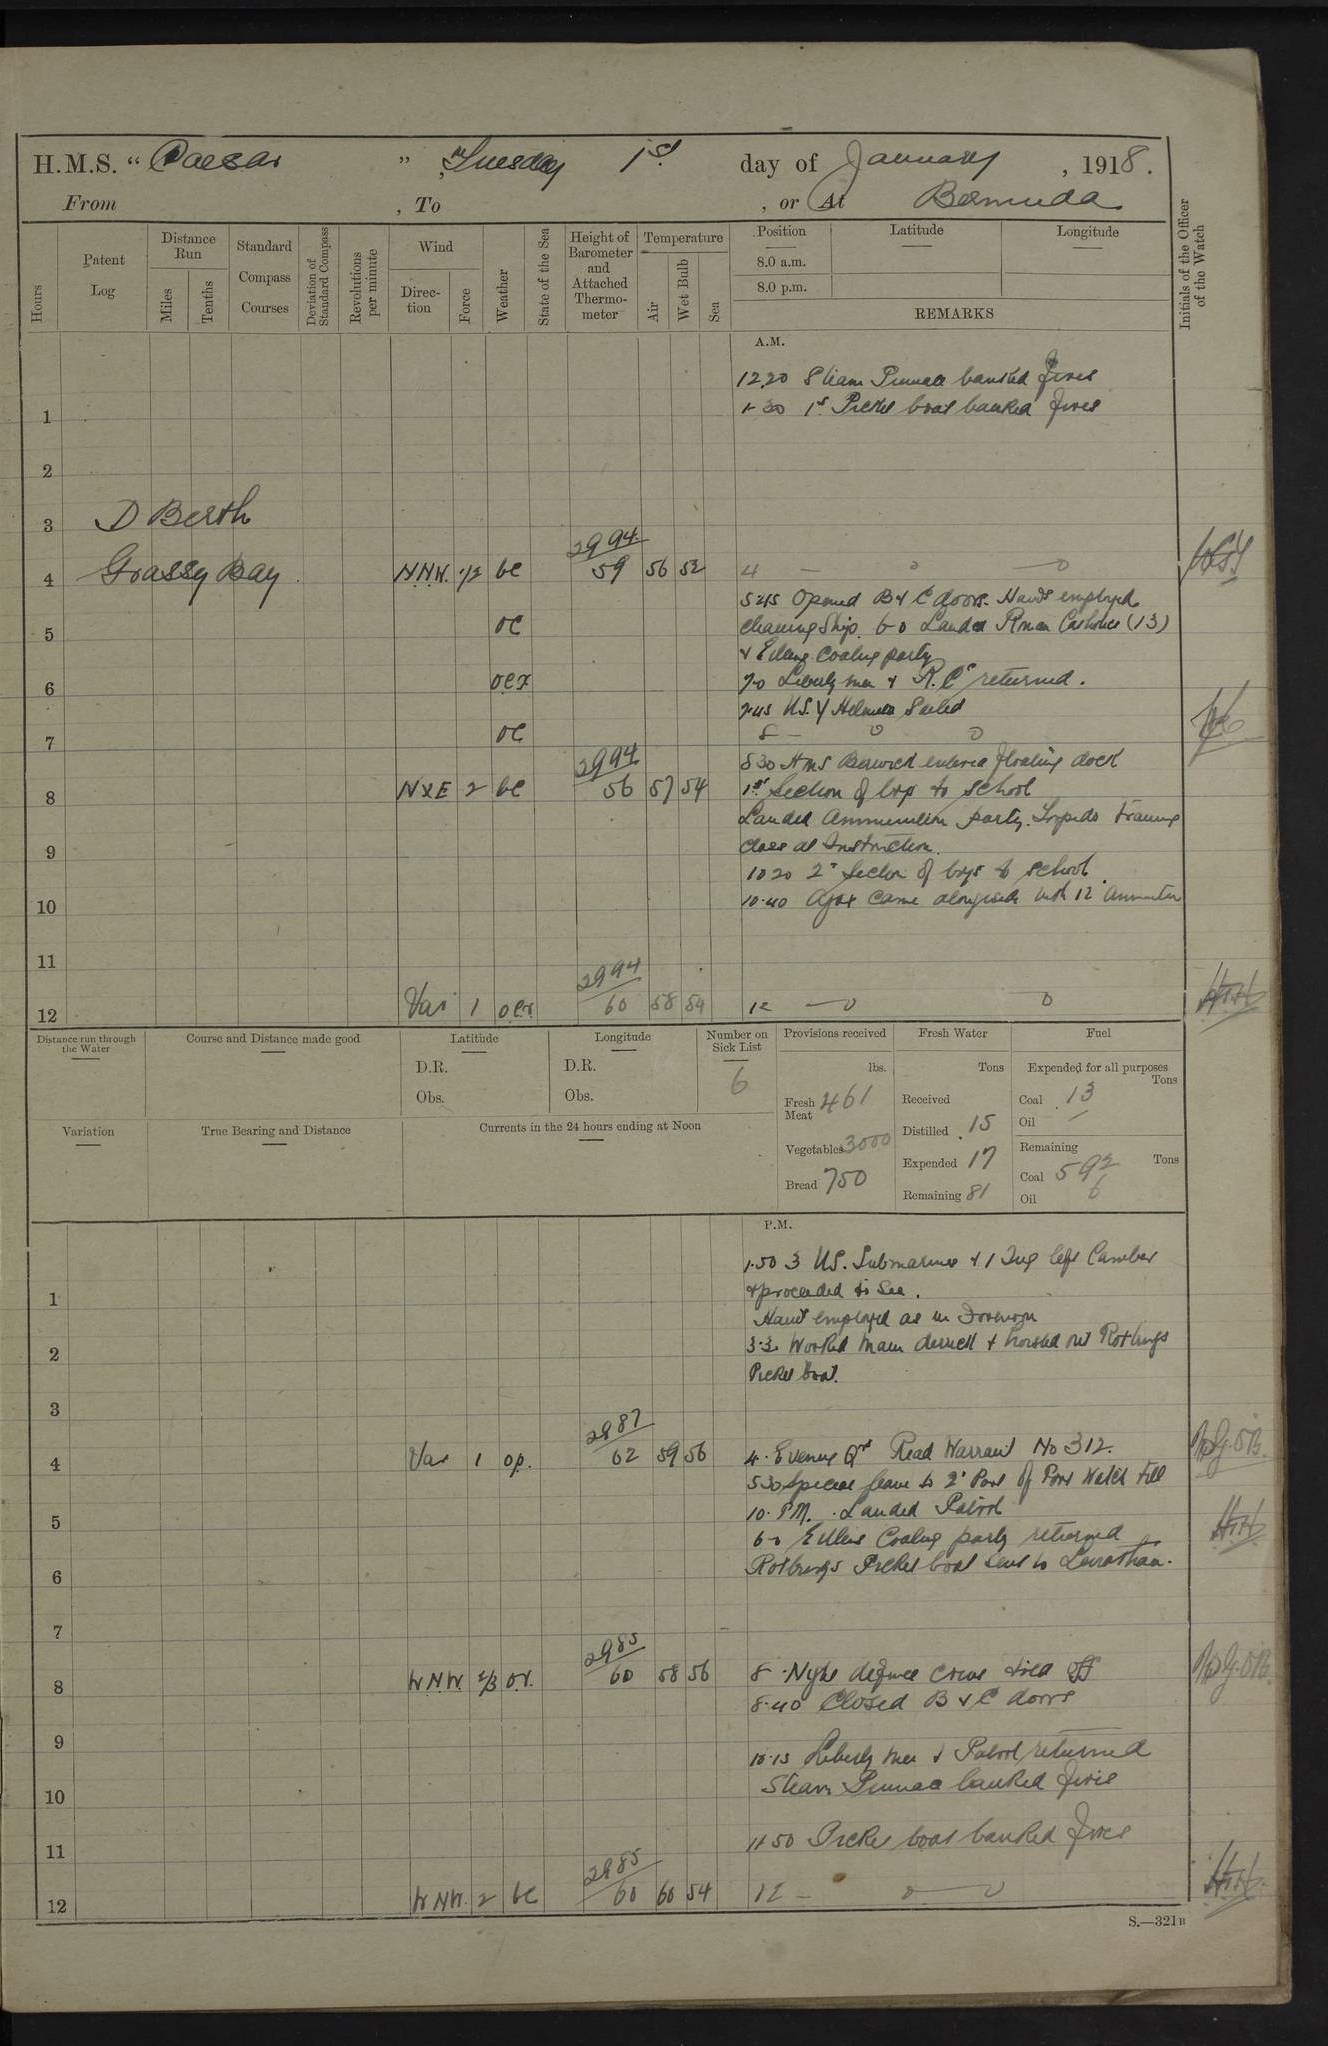 H.M.S. "Caesar", Tuesday 1st day of January, 1918.
From , To , or At Bermuda
Hours
Patent Log
Distance Run
Miles
Tenths
Standard Compass Courses
Deviation of Standard Compass
Revolutions per minute
Wind
Direction
Force
Weather
State of the Sea
Height of Barometer and Attached Thermometer
Temperature
Air
Wet Bulb
Sea
Position
8.0 a.m.
8.0 p.m.
Latitude
Longitude
REMARKS
Initials of the Officer of the Watch
A.M.
12.20 Steam Pinnace banked fires
1.30 1st Picket boat banked fires
1
2
3 D Berth
4 Grassy Bay N.N.W. 1/2 bc 2994 59 56 52 4
5.45 Opened B & C doors. Hands employed
5 oc cleaning Ship. 6.0 Landed Roman Catholics (13)
& coaling party
6 ocx 7.0 Liberty men & R.C's returned.
7.45 U.S.Y Sailed
7 oc 8
8.30 HMS Berwick entered floating dock
8 NXE 2 bc 2994 56 57 54 1st Section of boys to school
Landed Ammunition party. Torpedo training
9 class at Instruction.
10.20 2nd Section of boys to school.
10 10.40 Ajax came alongside with 12" Ammunition
11
12 Var 1 2994 60 58 54 12
Distance run through the Water
Course and Distance made good
Latitude
D.R.
Obs.
Longitude
D.R.
Obs.
Number on Sick List
6
Provisions received
lbs.
Fresh Meat 461
Vegetables 3000
Bread 750
Fresh Water
Tons
Received
Distilled 15
Expended 17
Remaining 81
Fuel
Expended for all purposes
Tons
Coal 13
Oil /
Remaining
Tons
Coal 592
Oil 6
Variation
True Bearing and Distance
Currents in the 24 hours ending at Noon
P.M.
1.50 3 U.S. Submarines & 1 Tug left Camber
1 & proceeded to Sea.
Hands employed as in Forenoon
2 Worked main derrick & hoisted out
Picket boat.
3
4 Var 1 op. 2987 62 59 56 4. Evening Qrs Read Warrant No 312.
5.30 Special leave to 2nd Part of Port Watch till
5 10. PM. Landed Patrol
6.0 Coaling party returned
6 Picket boat sent to Leviathan.
7
8 W.N.W. 2/3 2985 60 58 56 8. Night defence crews
8.40 Closed B & C doors
9
10.15 Liberty men & Patrol returned
10 Steam Pinnace banked fires
11 11.50 Picket boat banked fires
12 W.N.W. 2 bc 2985 60 60 54 12
S.—321B